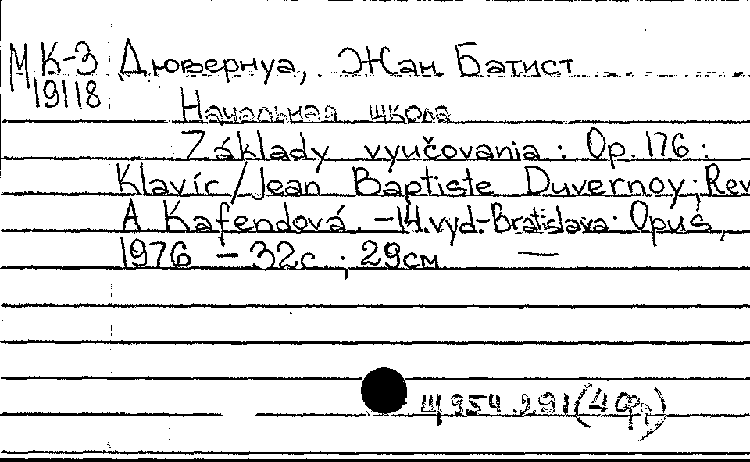 М К-3 Дювернуа, Жан Батист
19118
Начальная школа
Základy vyučovania : Op. 176 :
Klavíc / Jean Baptiste Duvernoy ; Rev
A Kafendová. - 14. vyd. - Bratislava : Opus,
1976 - 32с. ; 29см. —
Щ 954.291(4 Ф)